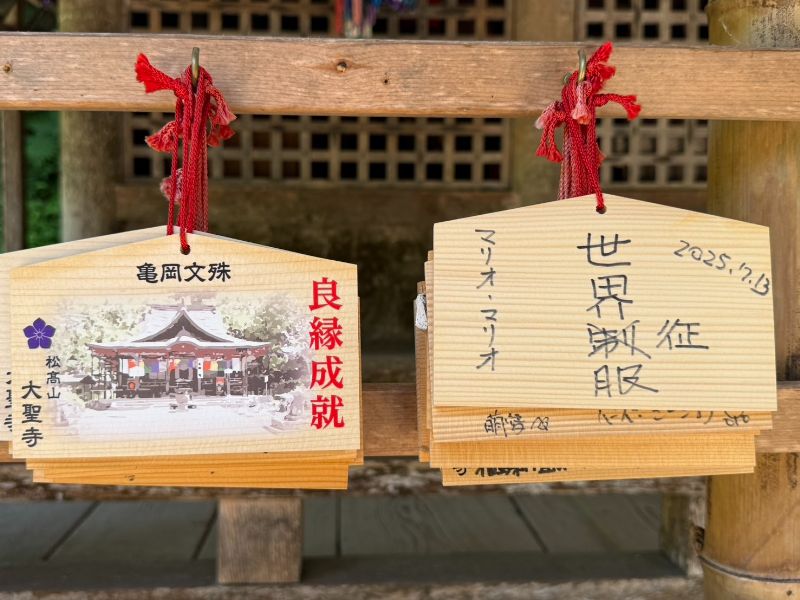 亀岡文殊
良縁成就
松高山
大聖寺
2025.7.13
世界制服
征
マリオ・マリオ